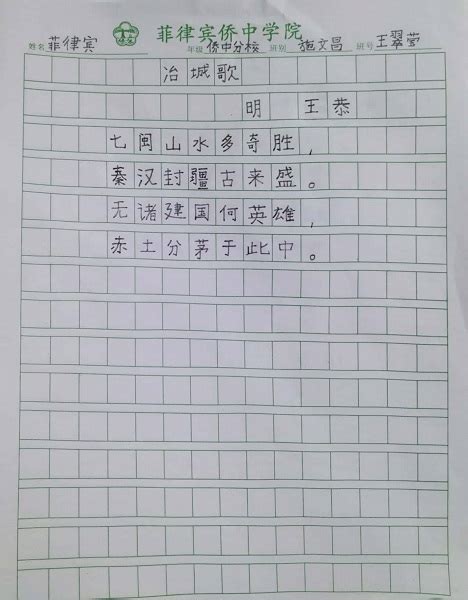 菲律宾侨中学院
姓名 菲律宾 年级 侨中分校 班别 施文昌 班号 王翠莹
冶城歌
明 王恭
七闽山水多奇胜,
秦汉封疆古来盛。
无诸建国何英雄,
赤土分茅于此中。